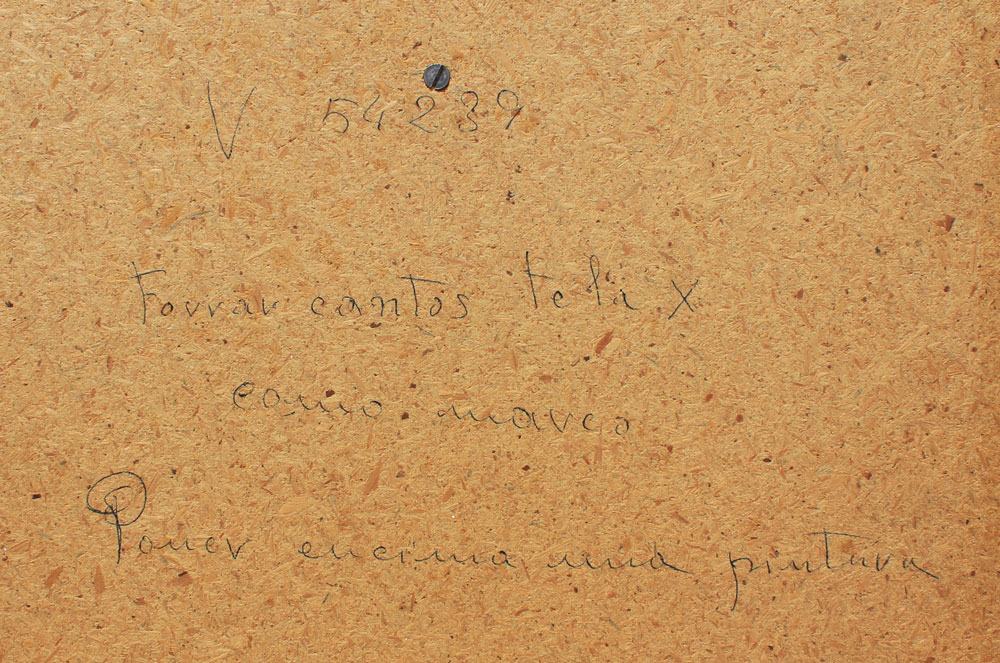 V 54239
Forrar cantos tela x
como marco
Poner encima una pintura